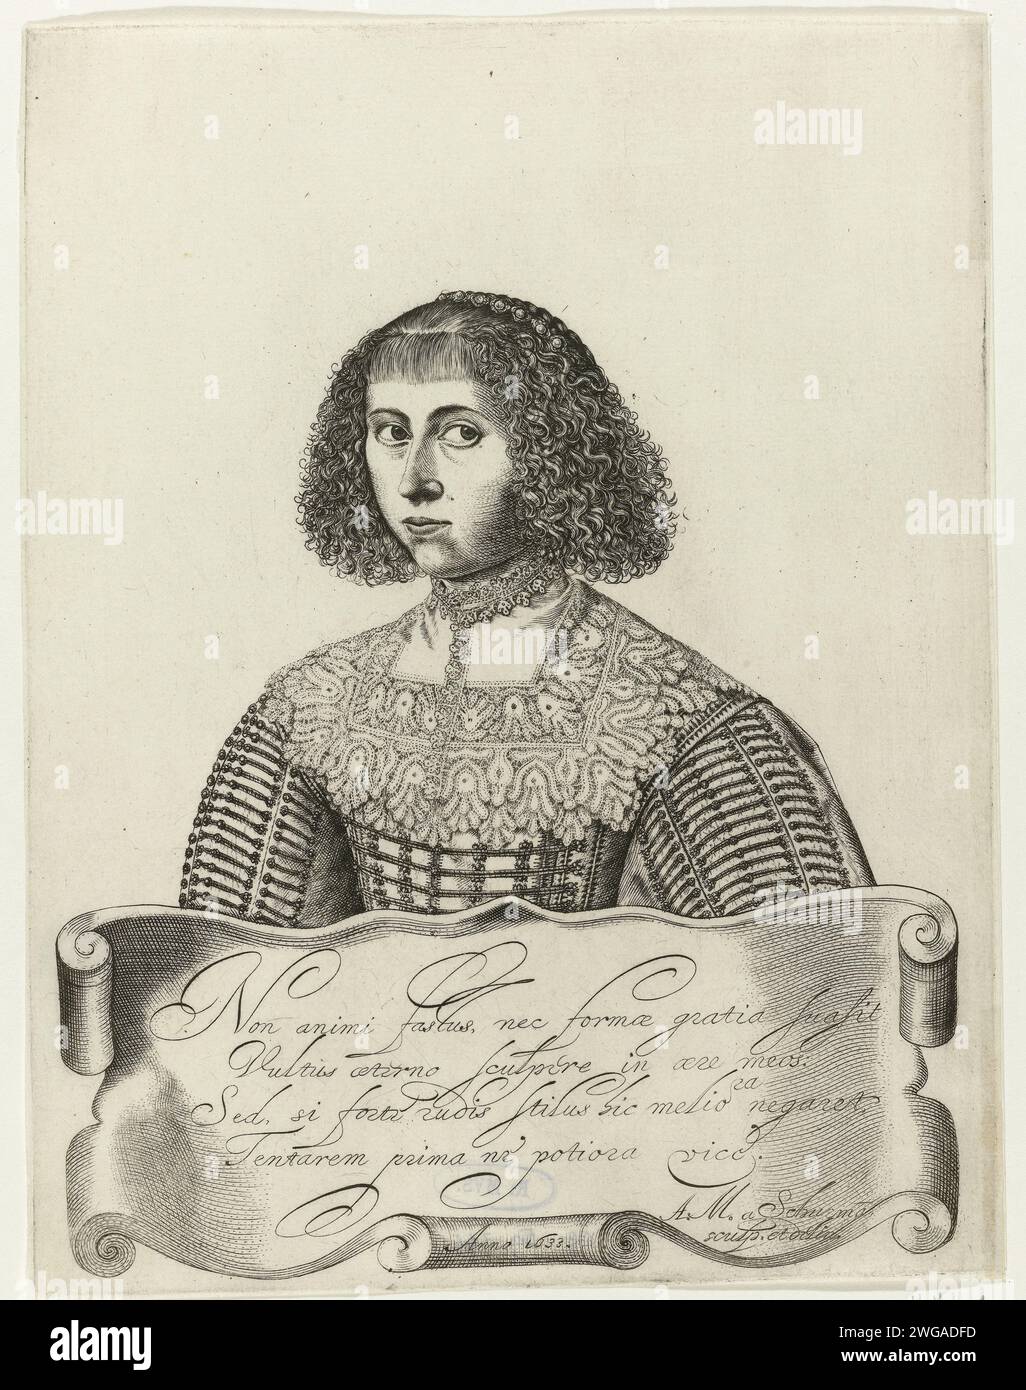 Non animi fastus, nec formæ gratia suasit
Vultus æterno sculpere in ære meos:
Sed, si forte rudis stilus hic meliora negaret,
Tentarem prima ne potiora vice.
A. M. a Schurman
sculp. et delin.
Anno 1633.
alamy
alamy
Image ID: 2WGADFD
www.alamy.com